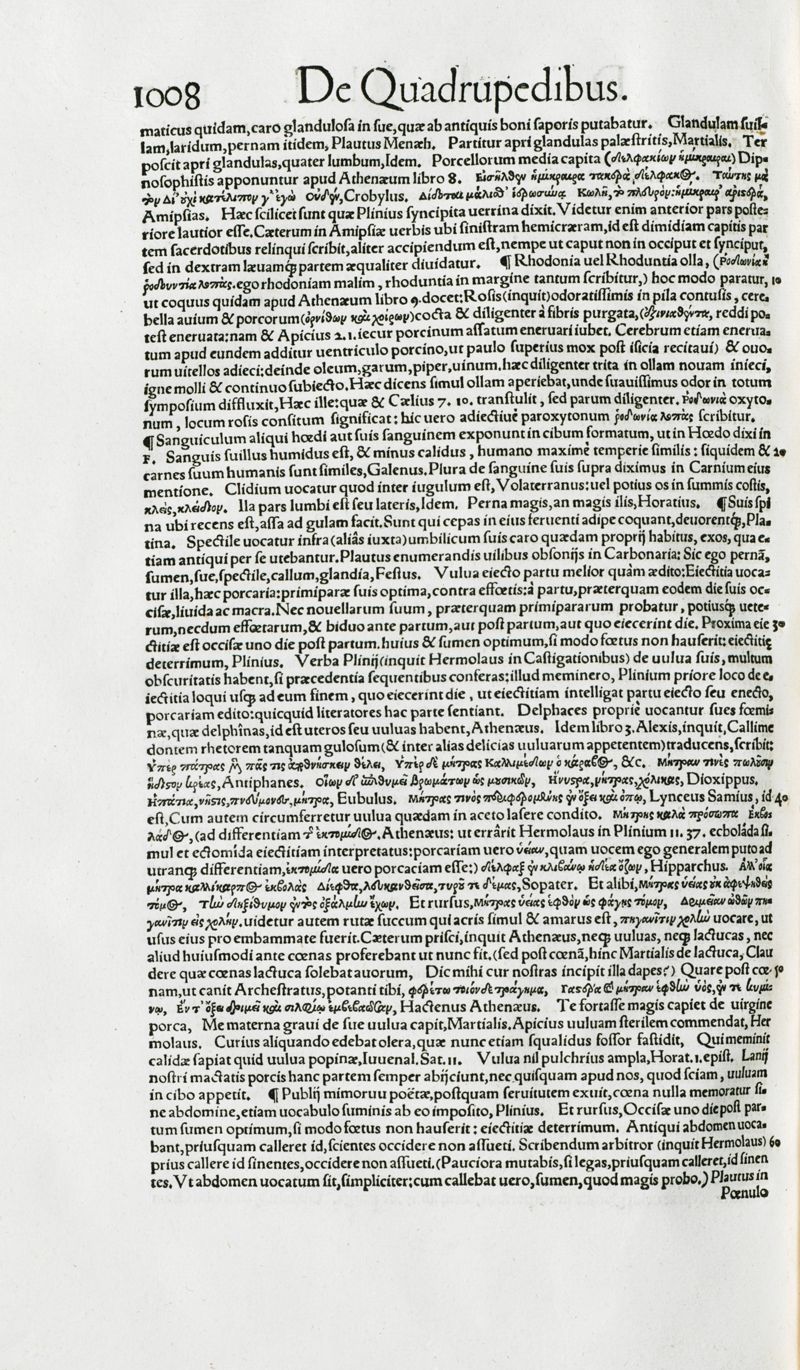 1008 De Quadrupedibus.
maticus quidam, caro glandulosa in sue, quæ ab antiquis boni saporis putabatur. Glandulam suil-
lam, laridum, pernam itidem, Plautus Menæh. Partitur apri glandulas palæstritis, Martialis. Ter
poscit apri glandulas, quater lumbum, Idem. Porcellorum media capita (δελφακίων ἡμίκραιρα) Dip-
nosophistis apponuntur apud Athenæum libro 8. Εἰσῆλθεν ἡμίκραιρα τακερὰ δέλφακος.
Crobylus. Κωλῆ, τὸ πλευρὸν, ἡμίκραιρ' ἀριστερὰ,
Amipsias. Hæc scilicet sunt quæ Plinius syncipita uerrina dixit. Videtur enim anterior pars poste-
riore lautior esse. Cæterum in Amipsiæ uerbis ubi sinistram hemicræram, id est dimidiam capitis par
tem sacerdotibus relinqui scribit, aliter accipiendum est, nempe ut caput non in occiput et synciput,
sed in dextram læuamq́ partem æqualiter diuidatur. ¶ Rhodonia uel Rhoduntia olla, (Ῥοδωνία ἢ
ῥοδουντία λοπὰς. ego rhodoniam malim, rhoduntia in margine tantum scribitur,) hoc modo paratur, 10
ut coquus quidam apud Athenæum libro 9. docet: Rosis (inquit) odoratissimis in pila contusis, cere-
bella auium & porcorum (ὀρνίθων καὶ χοίρων) cocta & diligenter à fibris purgata, (ἐξινιασθέντα, reddi po-
test eneruata: nam & Apicius 2.1. iecur porcinum assatum eneruari iubet. Cerebrum etiam enerua-
tum apud eundem additur uentriculo porcino, ut paulo superius mox post isicia recitaui) & ouo-
rum uitellos adieci: deinde oleum, garum, piper, uinum. hæc diligenter trita in ollam nouam inieci,
igne molli & continuo subiecto. Hæc dicens simul ollam aperiebat, unde suauissimus odor in totum
symposium diffluxit, Hæc ille: quæ & Cælius 7. 10. transtulit, sed parum diligenter. Ῥοδωνιὰ oxyto-
num, locum rosis consitum significat: hic uero adiectiuè paroxytonum ῥοδωνία λοπὰς scribitur.
¶ Sanguiculum aliqui hœdi aut suis sanguinem exponunt in cibum formatum, ut in Hœdo dixi in
F. Sanguis suillus humidus est, & minus calidus, humano maximè temperie similis: siquidem & 20
carnes suum humanis sunt similes, Galenus. Plura de sanguine suis supra diximus in Carnium eius
mentione. Clidium uocatur quod inter iugulum est, Volaterranus: uel potius os in summis costis,
κλεὶς, κλείδιον. Ila pars lumbi est seu lateris, Idem. Perna magis, an magis ilis, Horatius. ¶ Suis spi
na ubi recens est, assa ad gulam facit. Sunt qui cepas in eius feruenti adipe coquant, deuorentq́, Pla-
tina. Spectile uocatur infra (aliâs iuxta) umbilicum suis caro quædam proprij habitus, exos, qua e-
tiam antiqui per se utebantur. Plautus enumerandis uilibus obsonijs in Carbonaria: Sic ego pernã,
sumen, sue, spectile, callum, glandia, Festus. Vulua eiecto partu melior quàm ædito: Eiectitia uoca-
tur illa, hæc porcaria: primiparæ suis optima, contra effœtis: à partu, præterquam eodem die suis oc-
cisæ, liuida ac macra. Nec nouellarum suum, præterquam primipararum probatur, potiusq́ uete-
rum, necdum effœtarum, & biduo ante partum, aut post partum, aut quo eiecerint die. Proxima eie 30
ctitiæ est occisæ uno die post partum. huius & sumen optimum, si modo fœtus non hauserit: eiectitiæ
deterrimum, Plinius. Verba Plinij (inquit Hermolaus in Castigationibus) de uulua suis, multum
obscuritatis habent, si præcedentia sequentibus conferas: illud meminero, Plinium priore loco de e-
iectitia loqui usq́ ad eum finem, quo eiecerint die, ut eiectitiam intelligat partu eiecto seu enecto,
porcariam edito: quicquid literatores hac parte sentiant. Delphaces propriè uocantur sues fœmi-
næ, quæ delphînas, id est uteros seu uuluas habent, Athenæus. Idem libro 3. Alexis, inquit, Callime
dontem rhetorem tanquam gulosum (& inter alias delicias uuluarum appetentem) traducens, scribit:
Ὑπὲρ πάτρας μὲν πᾶς τις ἀποθνήσκειν θέλει, Ὑπὲρ δὲ μήτρας Καλλιμέδων ὁ κάραβος, &c. Μήτραν τινὲς πωλοῦσιν
ἥδιστον κρέας, Antiphanes. Ἤνυστρα, μήτρας, χόλικας, Dioxippus.
μήτρα, Eubulus. Lynceus Samius, id 40
est, Cum autem circumferretur uulua quædam in aceto lasere condito. Μήτρης καλὰ πρόσωπα Ἐκβο-
λάδος, (ad differentiam τῆς ἐκτομίδος. Athenæus: ut errârit Hermolaus in Plinium 11. 37. ecboláda si-
mul et ectomida eiectitiam interpretatus: porcariam uero νέαιν, quam uocem ego generalem puto ad
utranq́ differentiam, ἐκτομίδα uero porcaciam esse:) Hipparchus.
Sopater. Et alibi,
Et rursus,
uidetur autem rutæ succum qui acris simul & amarus est, uocare, ut
usus eius pro embammate fuerit. Cæterum prisci, inquit Athenæus, neq́ uuluas, neq́ lactucas, nec
aliud huiusmodi ante cœnas proferebant ut nunc fit. (sed post cœnã, hinc Martialis de lactuca, Clau
dere quæ cœnas lactuca solebat auorum, Dic mihi cur nostras incipit illa dapes?) Quare post cœ- 50
nam, ut canit Archestratus, potanti tibi, φερέτω τοιόνδε τράγημα, Γαστέρα καὶ μήτραν ἑφθὴν ὑὸς, ἔν τε κυμί-
νῳ, Ἔν τ' ὄξει δριμεῖ καὶ σιλφίῳ ἐμβεβαῶσαν, Hactenus Athenæus. Te fortasse magis capiet de uirgine
porca, Me materna graui de sue uulua capit, Martialis. Apicius uuluam sterilem commendat, Her
molaus. Curius aliquando edebat olera, quæ nunc etiam squalidus fossor fastidit, Qui meminit
calidæ sapiat quid uulua popinæ, Iuuenal. Sat. 11. Vulua nil pulchrius ampla, Horat. 1. epist. Lanij
nostri mactatis porcis hanc partem semper abijciunt, nec quisquam apud nos, quod sciam, uuluam
in cibo appetit. ¶ Publij mimoruu poëtæ, postquam seruitutem exuit, cœna nulla memoratur si-
ne abdomine, etiam uocabulo suminis ab eo imposito, Plinius. Et rursus, Occisæ uno die post par-
tum sumen optimum, si modo fœtus non hauserit: eiectitiæ deterrimum. Antiqui abdomen uoca-
bant, priusquam calleret id, scientes occidere non assueti. Scribendum arbitror (inquit Hermolaus) 60
prius callere id sinentes, occidere non assueti. (Pauciora mutabis, si legas, priusquam calleret, id sinen
tes. Vt abdomen uocatum sit, simpliciter: cum callebat uero, sumen, quod magis probo.) Plautus in
Pœnulo